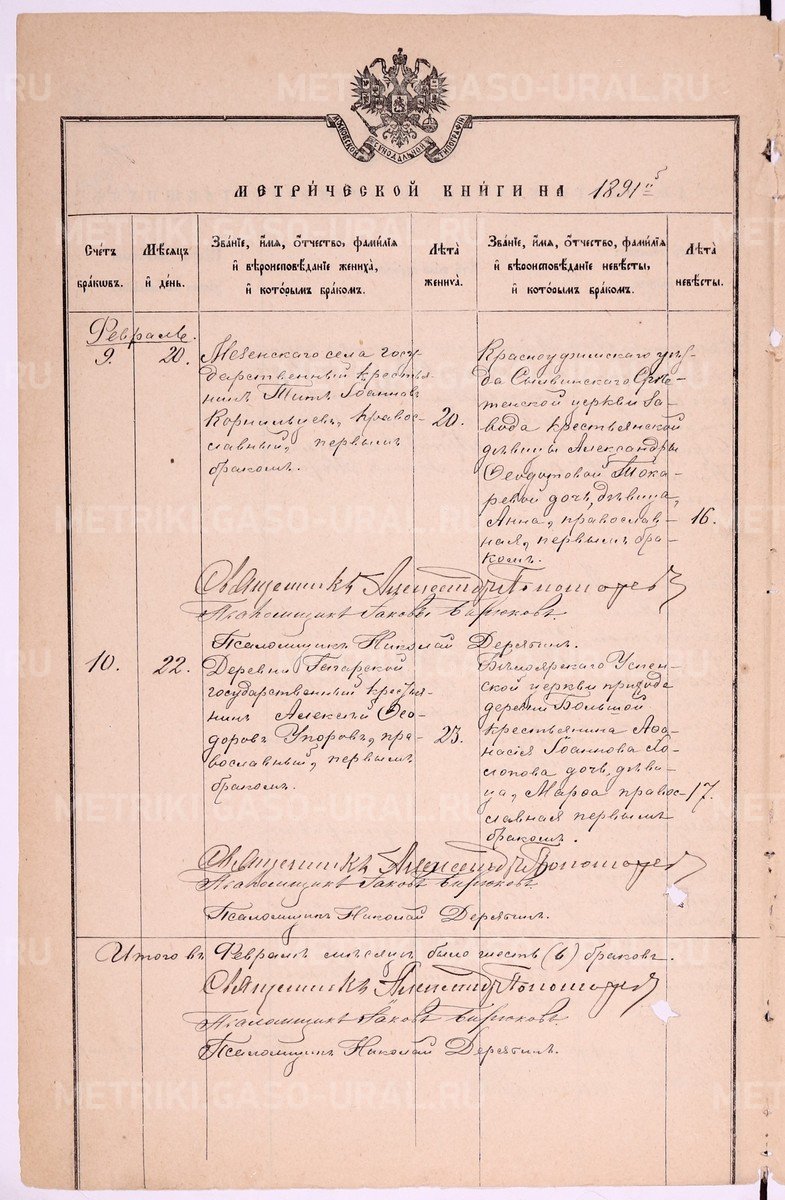 METRIKI.GASO-URAL.RU
МОСКОВСКОЙ СѴНОДАЛЬНОЙ ТИПОГРАФІИ
МЕТРИ́ЧЕСКОЙ КНИ́ГИ НА 1891й
Сче́тъ бра́кѡвъ.
Мѣ́сяцъ и де́нь.
Зва́нїе, и́мя, ѻ́тчество, фами́лїя и вѣроисповѣ́данїе жениха́, и кото́рымъ бра́комъ.
Лѣ́та жениха̀.
Зва́нїе, и́мя, ѻ́тчество, фами́лїя и вѣроисповѣ́данїе невѣ́сты, и кото́рымъ бра́комъ.
Лѣ́та невѣ́сты.
Февраль.
9. 20.
Мезенскаго села госу-
дарственный крестья-
нинъ Титъ Іоанновъ
Корнильцевъ, правос-
лавный, первымъ
бракомъ.
20.
Красноуфимскаго уѣз-
да Сылвинскаго Срѣ-
тенской церкви за-
вода крестьянской
дѣвицы Александры
Ѳеодотовой Тока-
ревой дочь, дѣвица,
Анна, православ-
ная, первымъ бра-
комъ.
16.
Священникъ Александръ Пономаревъ
Псаломщикъ Іаковъ Бирюковъ.
Псаломщикъ Николай Дерябинъ.
10. 22.
Деревни Гагарской
государственный крестья-
нинъ Алексѣй Ѳео-
доровъ Упоровъ, пра-
вославный, первымъ
бракомъ.
23.
Бѣлоярскаго Успен-
ской церкви прихода
деревни Большой
крестьянина Аѳа-
насія Іоаннова Хо-
лопова дочь, дѣви-
ца, Марѳа правос-
лавная первымъ
бракомъ.
17.
Священникъ Александръ Пономаревъ
Псаломщикъ Іаковъ Бирюковъ
Псаломщикъ Николай Дерябинъ.
Итого въ Февралѣ мѣсяцѣ было шесть (6) браковъ.
Священникъ Александръ Пономаревъ
Псаломщикъ Іаковъ Бирюковъ
Псаломщикъ Николай Дерябинъ.